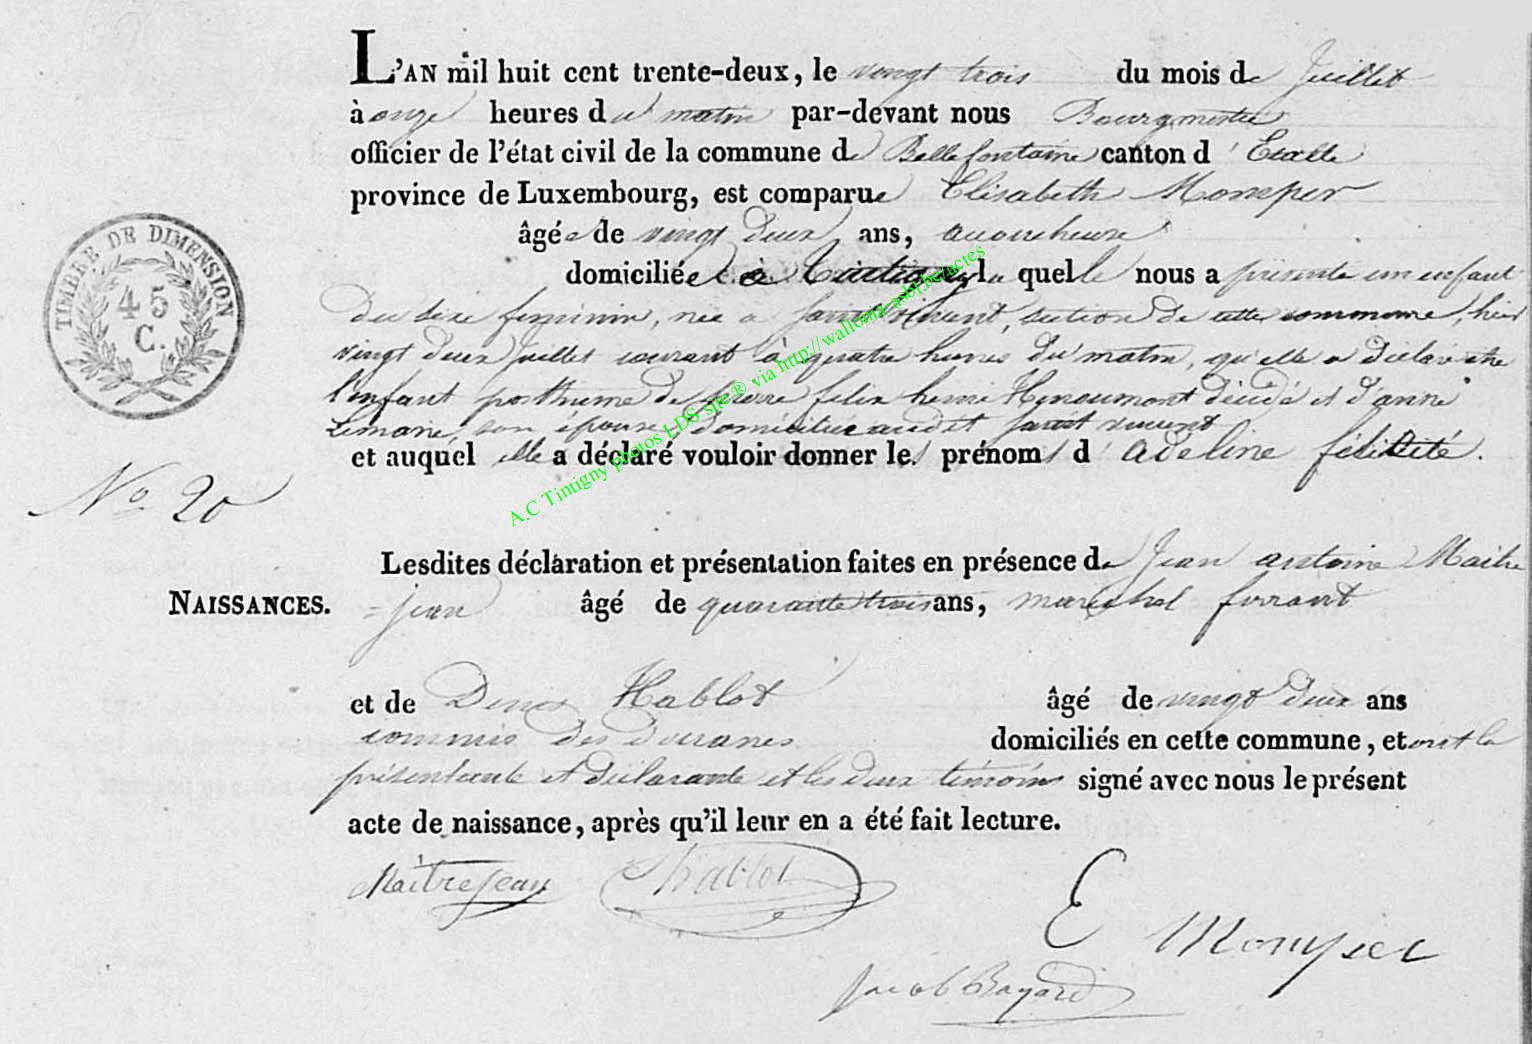 L'AN mil huit cent trente-deux, le vingt trois du mois de Juillet
à onze heures du matin par-devant nous Bourgmestre
officier de l'état civil de la commune de Bellefontaine canton d'Etalle
province de Luxembourg, est comparue Elisabeth Monsper
âgée de vingt deux ans, accoucheuse
domiciliée à Tintigny laquelle nous a présenté un enfant
du sexe féminin, née a Saint Vincent, section de cette commune, hier
vingt deux Juillet courant à quatre heures du matin, qu'elle a déclaré être
l'enfant posthume de pierre felix henri Henoumont décédé et d'anne
Lemaire, son épouse, domiciliée audit saint vincent
et auquel elle a déclaré vouloir donner les prénoms d'Adeline félicité.
No 20
Lesdites déclaration et présentation faites en présence de Jean antoine Maitre
NAISSANCES.
=jean âgé de quarante trois ans, maréchal ferrant
et de Denis Hablot âgé de vingt deux ans
commis des douanes domiciliés en cette commune, et ont la
présentante et déclarante et les deux témoins signé avec nous le présent
acte de naissance, après qu'il leur en a été fait lecture.
Maitrejean Hablot
E Monsper
Jacob Bayard
TIMBRE DE DIMENSION
45
C.
A.C Tintigny photos LDS spe® via http://wallonia.asbl.be/actes